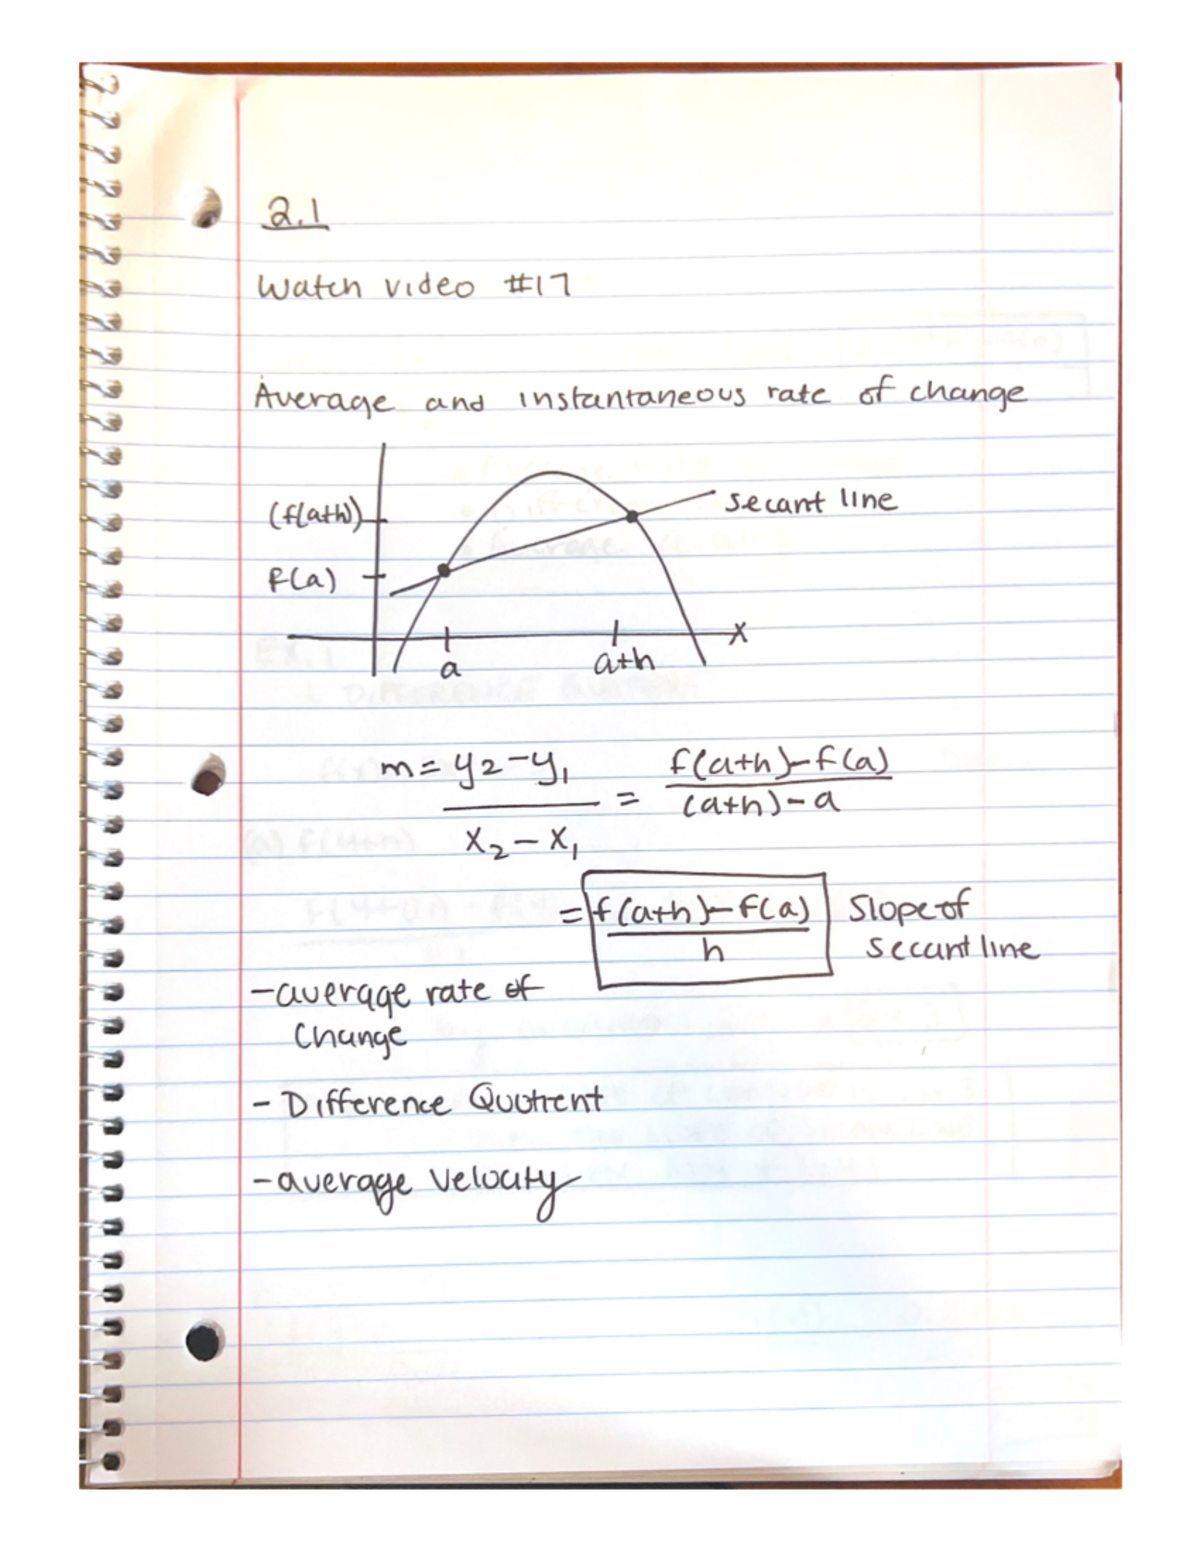 2.1
Watch video #17
Average and instantaneous rate of change
(f(a+h))
secant line
f(a)
x
a
a+h
m = y2 - y1 / x2 - x1 = f(a+h) - f(a) / (a+h) - a
= f(a+h) - f(a) / h Slope of
secant line
- average rate of
change
- Difference Quotient
- average velocity